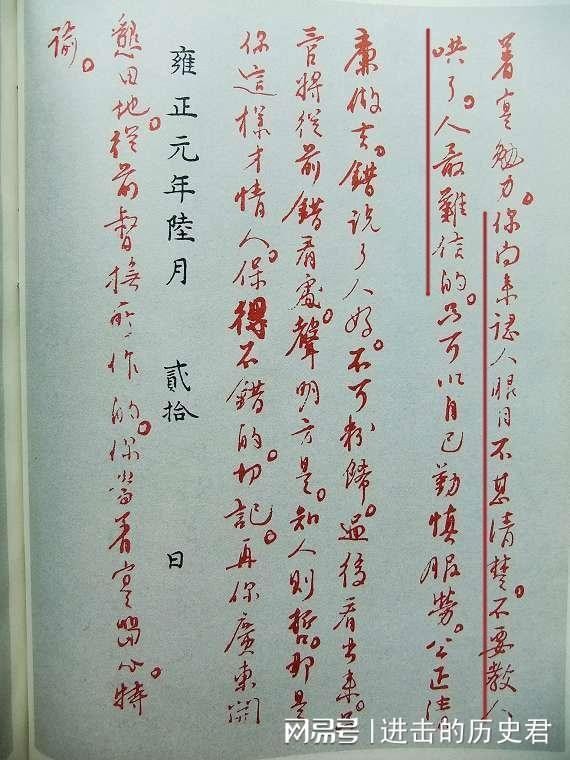 著寔勉力。你向來認人眼目不甚清楚。不要教人
哄了。人最難信的。只可以自己勤慎服勞。公正清
廉做去。錯說了人好。不可粉飾。過後看出來。只
管將從前錯看處。聲明方是。知人則哲。那是
你這樣才情人。保得不錯的。切記。再你廣東開
雍正元年陸月 貳拾 日
墾田地。從前督撫所作的。你當著寔留心。特
諭。
网易号 | 进击的历史君